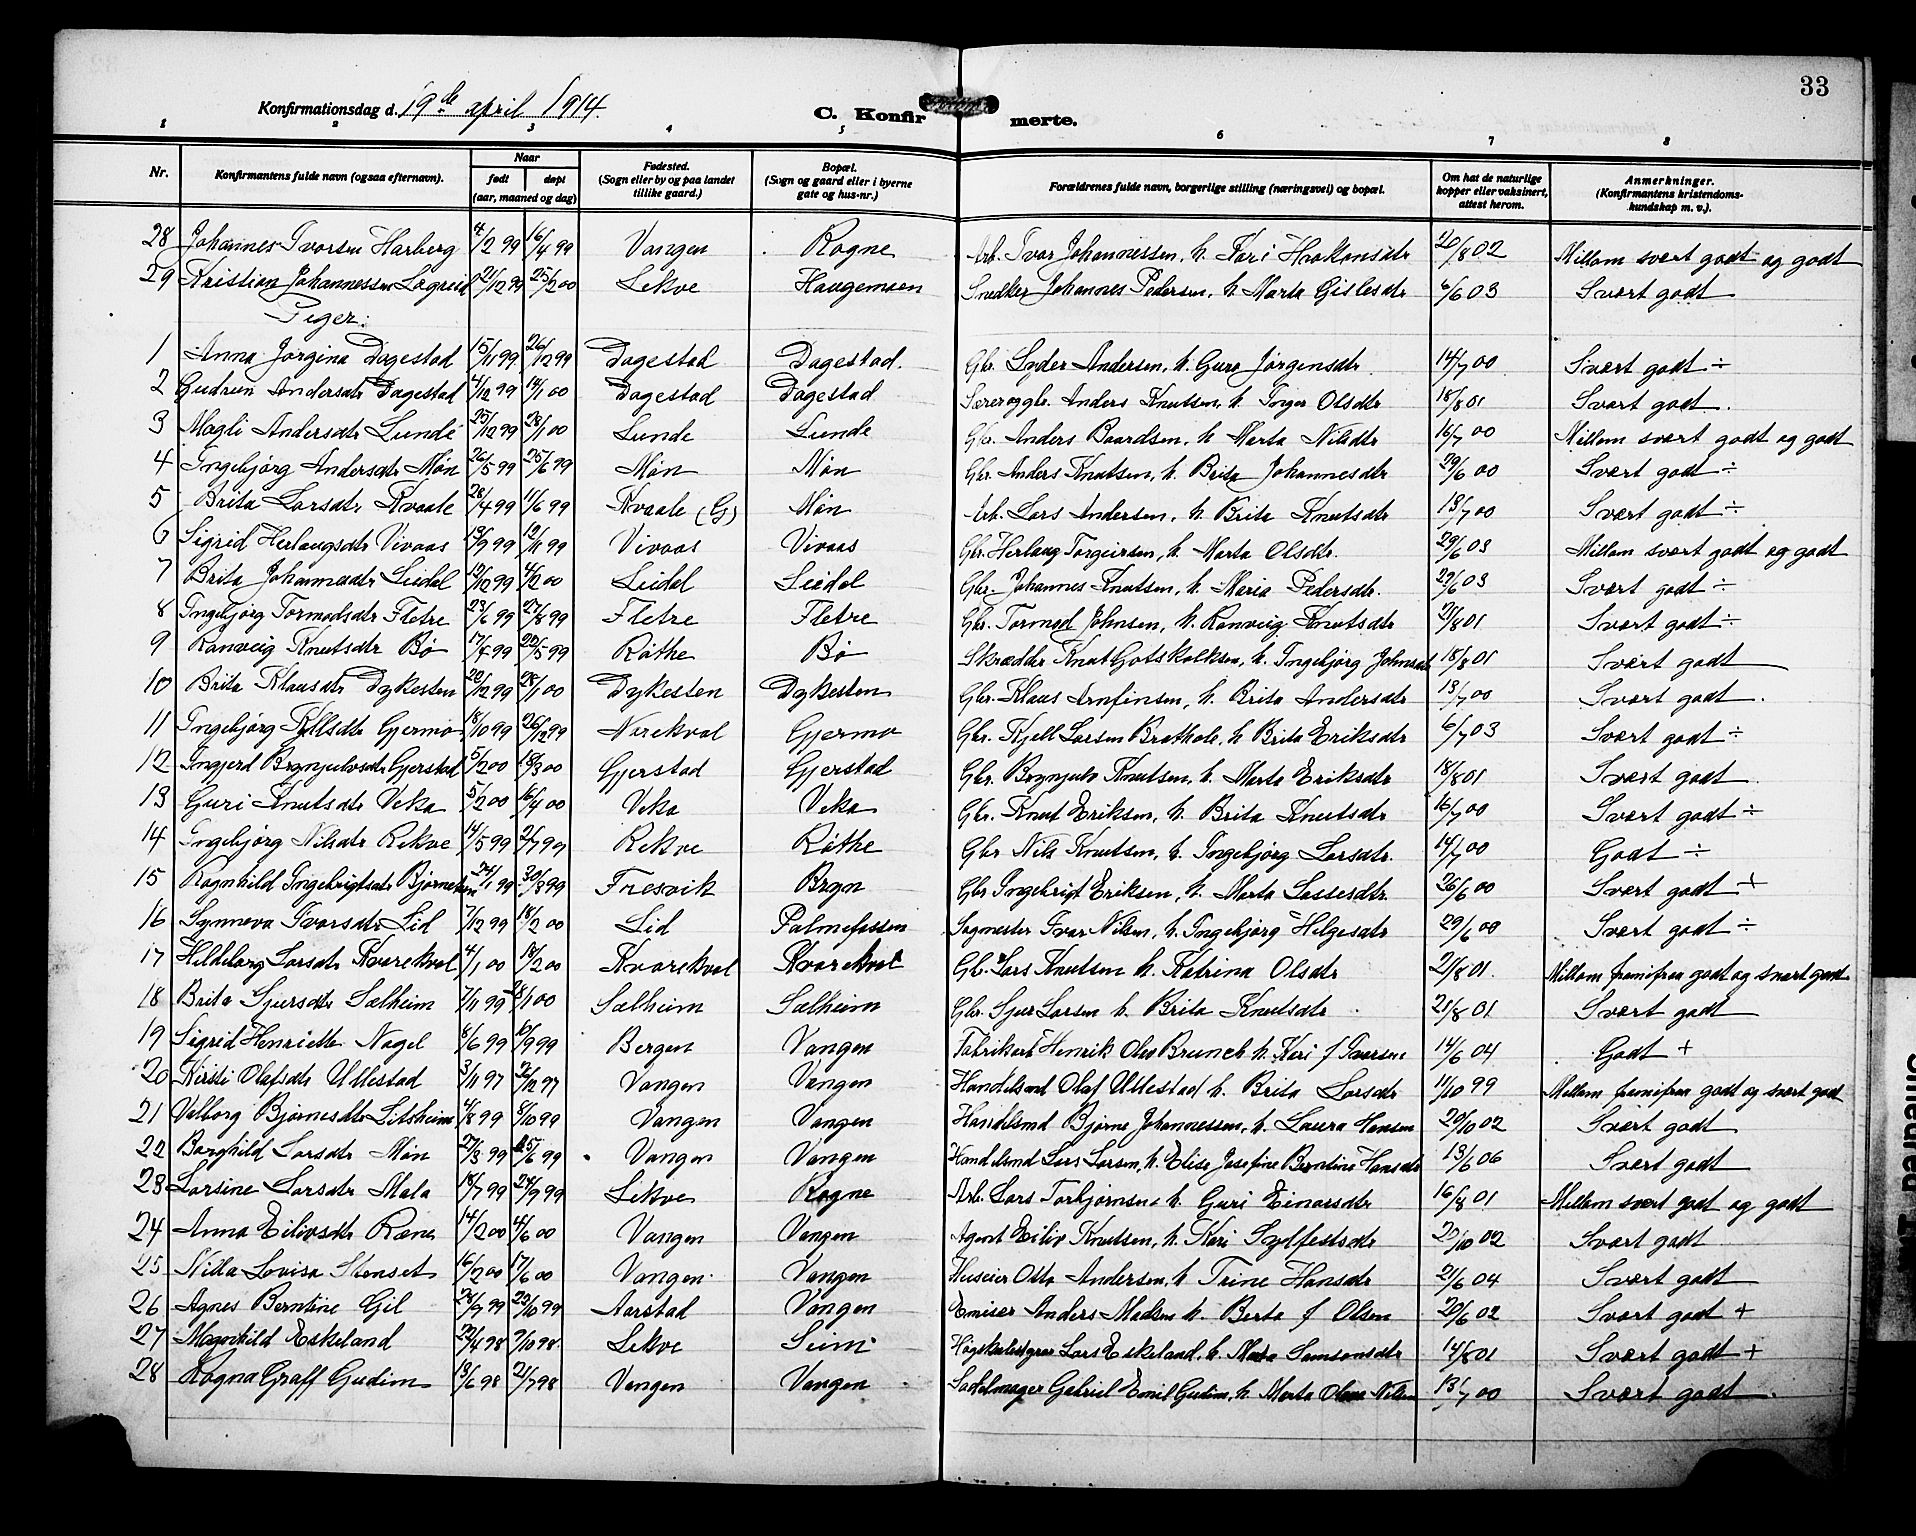 33
Konfirmationsdag d. 19de april 1914.
C. Konfirmerte.
1 2 3 4 5 6 7 8
Nr. Konfirmantens fulde navn (og saa efternavn). Naar født døpt (aar, maaned og dag) Fødested. (Sogn eller by og paa landet tillike gaard.) Bopæl. (Sogn og gaard eller i byerne gate og hus-nr.) Forældrenes fulde navn, borgerlige stilling (næringsvei) og bopæl. Om hat de naturlige kopper eller vaksinert, attest herom. Anmerkninger. (Konfirmantens kristendomskundskap m. v.).
28 Johannes Ivarsen Harberg 4/2 99 16/4 99 Vangen Rogne Arb. Ivar Johannessen, h. Kari Haakonsdtr 20/8 02 Millom svært godt og godt
29 Kristian Johannessen Lagreid 21/12 99 25/2 00 Lekve Haugemoen Snedker Johannes Pedersen, h. Marta Gislesdtr 6/6 03 Svært godt
Piger:
1 Anna Jørgina Dagestad 15/11 99 26/12 99 Dagestad Dagestad. Gbr. Lyder Andersen, h. Guro Jørgensdtr 14/7 00 Svært godt ÷
2 Gudrun Andersdtr Dagestad 4/12 99 14/1 00 Dagestad Dagestad Anders Knutsen, h. Inger Olsdtr 18/8 01 Svært godt.
3 Magli Andersdtr Lunde 25/12 99 28/1 00 Lunde Lunde Gbr. Anders Baardsen, h. Marta Nilsdtr 16/7 00 Millom svært godt og godt
4 Ingebjørg Andersdtr Møn 26/5 99 25/6 99 Møn Møn Gbr. Anders Knutsen, h. Brita Johannesdtr 29/6 00 Svært godt ÷
5 Brita Larsdtr Kvaale 28/4 99 11/6 99 Kvaale (G) Møn Arb. Lars Andersen, h. Brita Knutsdtr 13/7 00 Svært godt ÷
6 Sigrid Herlaugsdtr Vivaas 13/9 99 12/11 99 Vivaas Vivaas Gbr. Herlaug Torgeirsen, h. Marta Olsdtr. 29/6 03 Millom svært godt og godt
7 Brita Johannesdtr Lidal 12/12 99 4/2 00 Lidal Lidal Gbr. Johannes Knutsen, h. Maria Pedersdtr. 29/6 03 Svært godt ÷
8 Ingebjørg Tormodsdtr Fletre 23/6 99 27/8 99 Fletre Fletre Gbr. Tormod Johnsen, h. Ranveig Knutsdtr 21/8 01 Svært godt ÷
9 Ranveig Knutsdtr Bø 17/4 99 22/5 99 Røthe Bø Skrædder Knut Gotskalksen, h. Ingebjørg Johnsdtr 18/8 01 Svært godt
10 Brita Klausdtr Dykesten 20/12 99 28/1 00 Dykesten Dykesten Gbr. Klaus Arnfinsen, h. Brita Andersdtr 13/7 00 Svært godt.
11 Ingebjørg Kjellsdtr Gjermo 18/10 99 26/12 99 Nirekval Gjermo Gbr. Kjell Larsen Brathole, h. Brita Eriksdtr 6/7 03 Svært godt ÷
12 Ingjerd Brynjulvsdtr Gjerstad 5/2 00 18/3 00 Gjerstad Gjerstad Gbr. Brynjulv Knutsen, h. Marta Eriksdtr 18/8 01 Svært godt
13 Guri Knutsdtr Veka 5/2 00 16/4 00 Veka Veka Gbr. Knut Eriksen, h. Brita Knutsdtr 16/7 00 Svært godt ÷
14 Ingebjørg Nilsdtr Rekve 14/5 99 2/7 99 Rekve Røthe Gbr. Nils Knutsen, h. Ingebjørg Larsdtr. 14/7 00 Godt ÷
15 Ragnhild Ingebrigtsdtr 24/1 99 30/3 99 Fresvik Bryn Gbr. Ingebrigt Eriksen, h. Marta Lassesdtr. 26/6 00 Svært godt ÷
16 Synneva Ivarsdtr Lid 7/12 99 18/2 00 Lid Palmefossen Sagmester Ivar Nilsen, h. Ingebjørg Helgesdtr 29/6 00 Svært godt ÷
17 Hildeborg Larsdtr Kvarekval 4/1 00 18/2 00 Kvarekval Kvarekval Gb. Lars Knutsen h. Katrina Olsdtr 21/8 01 Millom framifraa godt og svært godt
18 Brita Sjursdtr Sælheim 7/11 99 28/1 00 Sælheim Sælheim Gbr. Sjur Larsen h. Brita Knutsdtr 21/8 01 Svært godt
19 Sigrid Henriette Nagel 8/6 99 10/9 99 Bergen Vangen Fabrikant Henrik Olav Brunch h. Kari f Iversen 14/6 04 Godt +
20 Kirsti Olafsdtr Ullestad 3/11 97 26/12 97 Vangen Vangen Handelsmd Olaf Ullestad h. Brita Larsdtr 11/10 99 Millom framifraa godt og svært godt
21 Valborg Bjørnesdtr Litsheim 4/8 99 8/10 99 Vangen Vangen Handelsmd Bjørne Johannessen, h. Laura Hansen 20/10 02 Svært godt
22 Borghild Larsdtr Møn 27/3 99 25/6 99 Vangen Vangen Handelsmd Lars Larsen, h. Elise Josefine Berntine Hansdtr 13/6 06 Svært godt
23 Larsine Larsdtr Mala 18/7 99 24/9 99 Lekve Rogne Arb. Lars Torbjørnsen h. Guri Einarsdtr 16/8 01 Millom svært godt og godt
24 Anna Eilivsdtr Ræne 14/2 00 4/6 00 Vangen Vangen Agent Eiliv Knutsen, h. Kari Sylfestsdtr 20/10 02 Svært godt
25 Lovisa Stenset 16/2 00 17/6 00 Vangen Vangen Huseier Otto Andersen, h. Trine Hansdtr 21/6 04 Svært godt
26 Agnes Berntine Gil 28/9 99 22/10 99 Aarstad Vangen Anders Madsen h. Berta f Olsen 20/6 02 Svært godt +
27 Magnhild Eskeland 22/4 98 9/10 98 Lekve Seim Lars Eskeland, h. Marta Samsonsdtr 14/8 01 Svært godt +
28 Ragna Graff Gudim 13/6 98 2/7 98 Vangen Vangen Sadelmager Gabriel Emil Gudim, h. Marta Olena Nilsen 13/7 00 Svært godt.